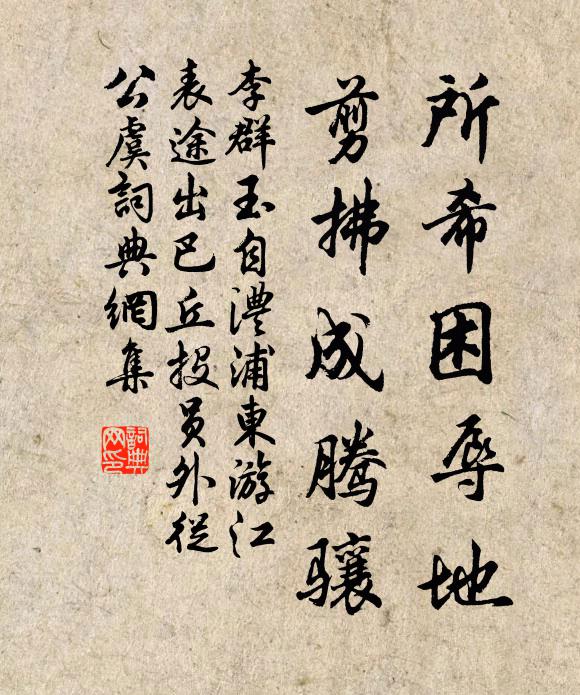 所希困辱地
剪拂成腾骧
李群玉自澧浦東游江
表途出巴丘投员外從
公虞詞典網集
詞典
网印